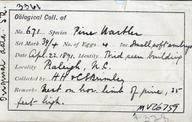 Oological Coll. of
No. 671. Species Pine Warbler
Set Mark 3/4 No. of Eggs 4 Inc. Small embryo
Date Apr. 22. 1891. Identity. Bird seen building
Locality Raleigh, N.C.
Collected by H H & C S Brimley
Remarks. Nest on hor. limb of pine, 35
feet high.
MVZ6759